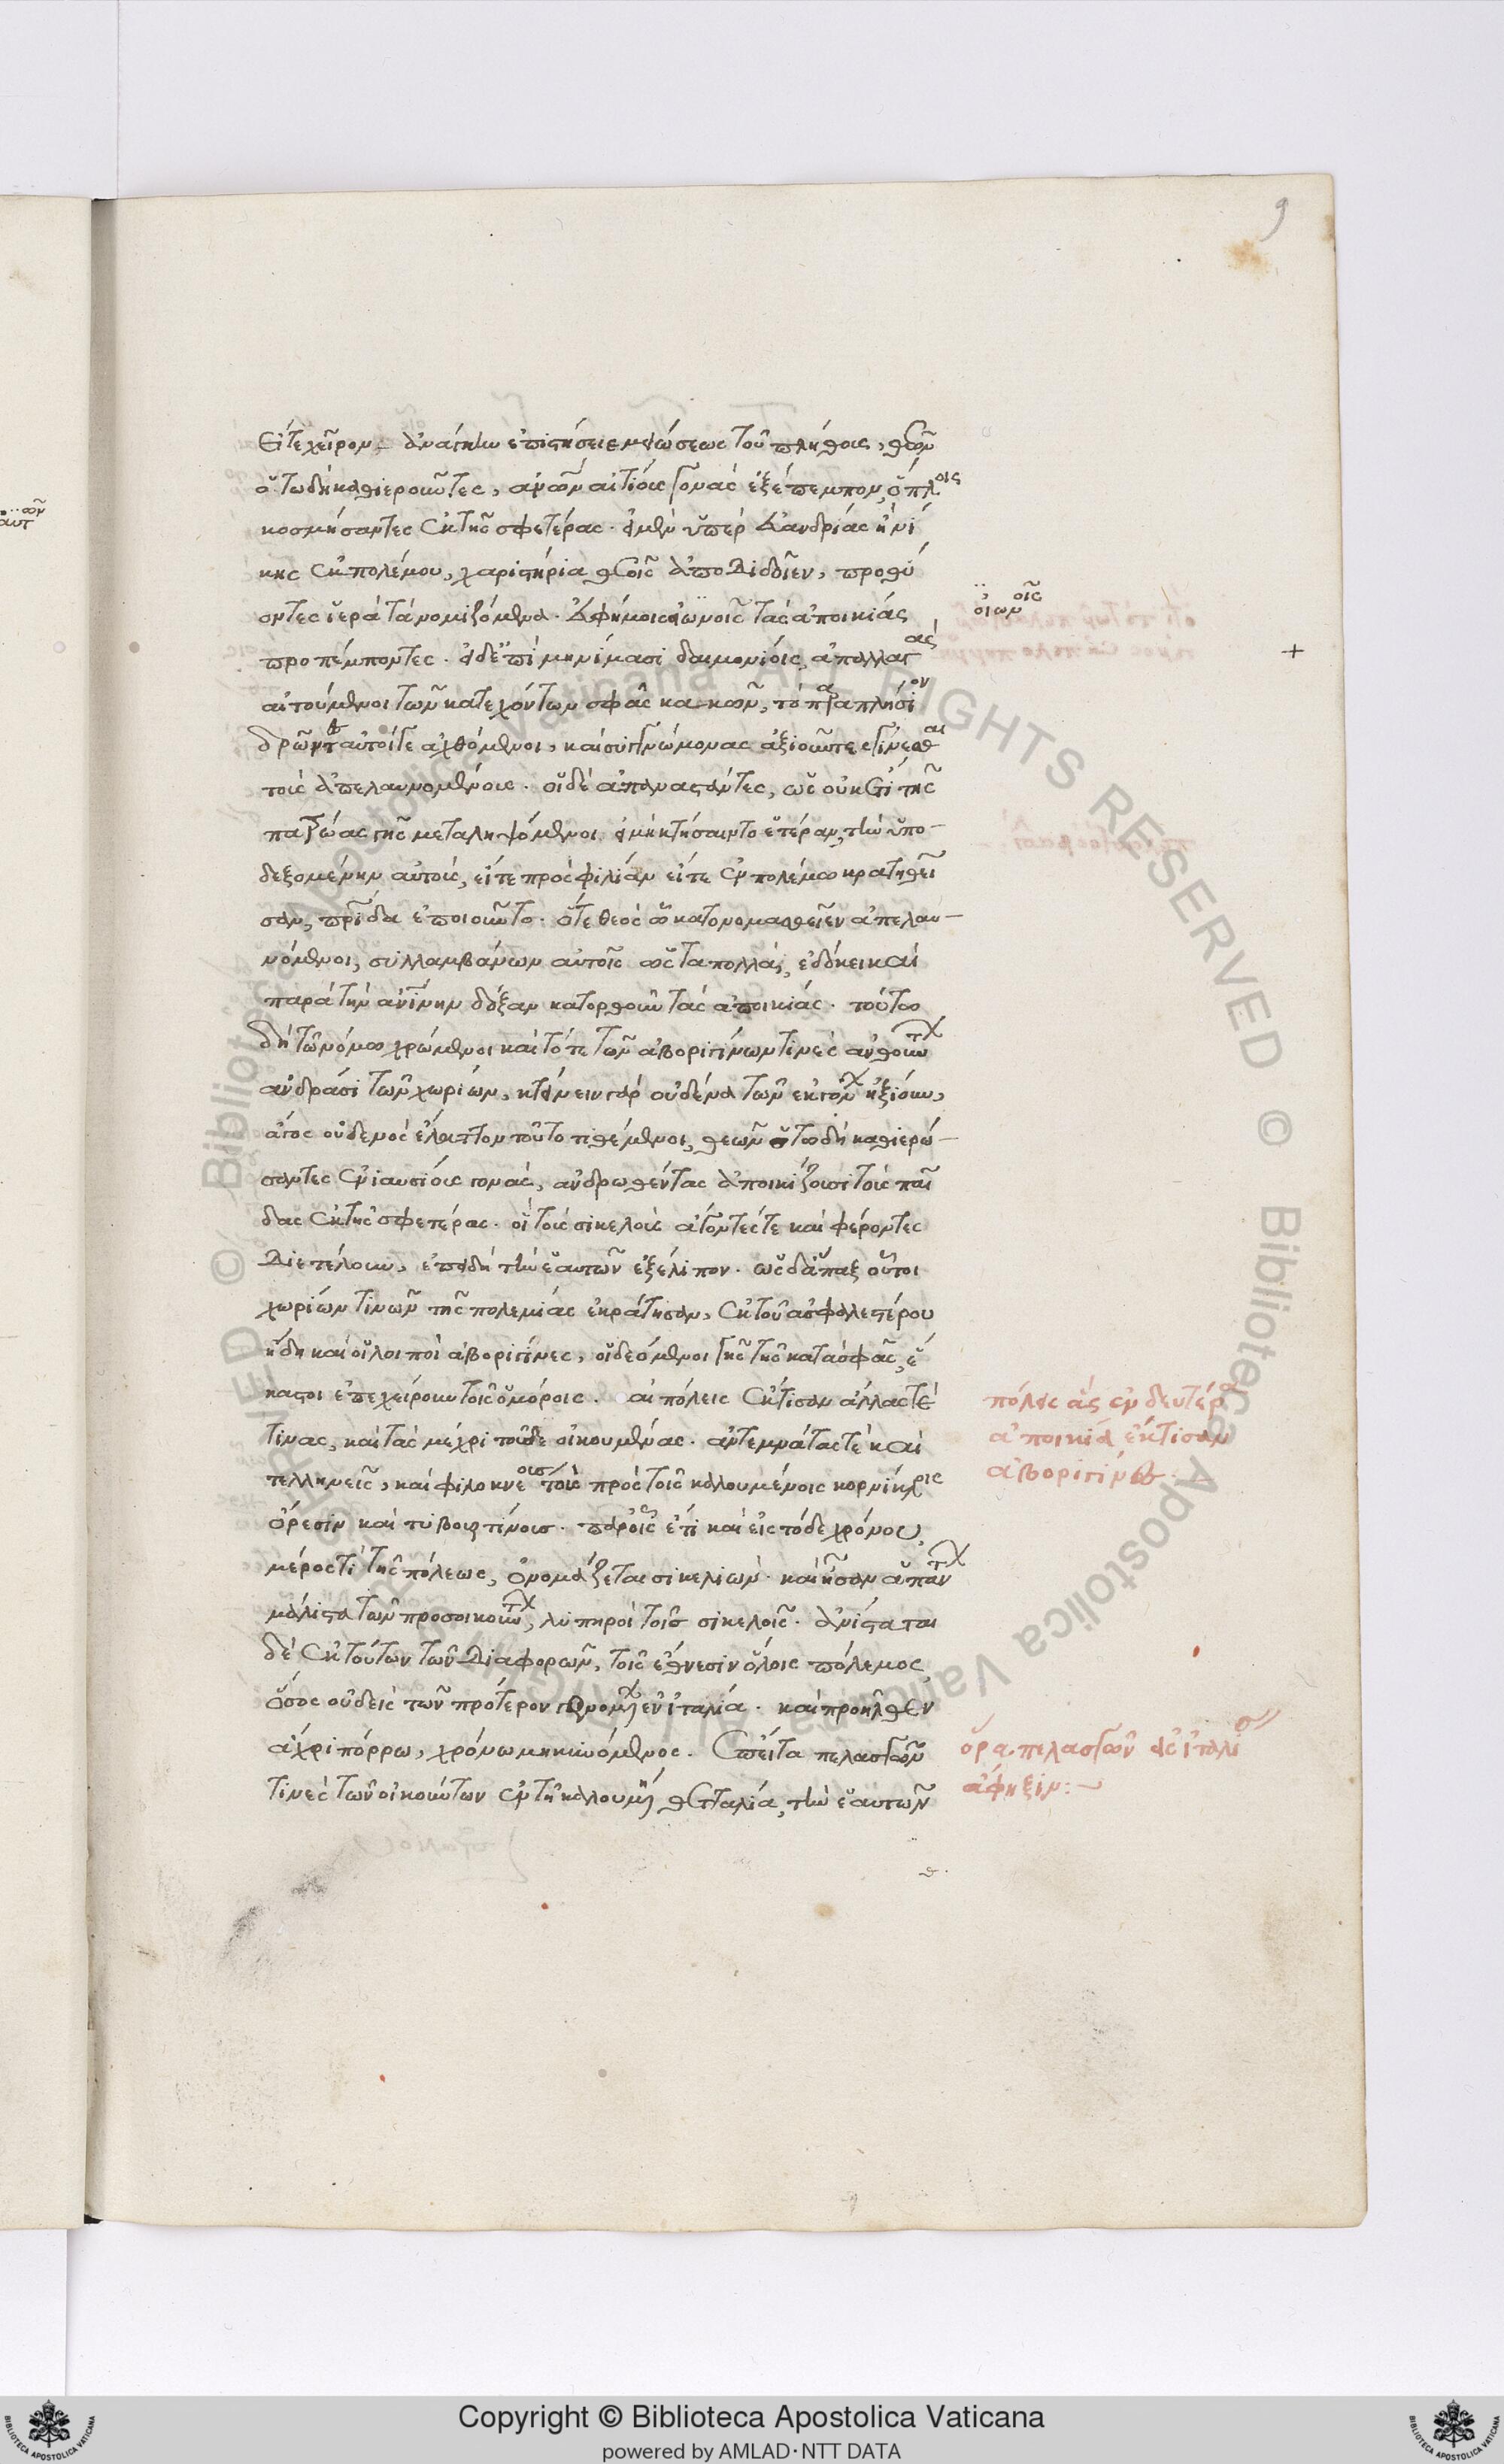 9
εἴτε χεῖρον, ἀνάγκην ἐπιστήσειε μειώσεως τοῦ πλήθους, θεῶν
ὅτωδὴ καθιεροῦντες, ἀνθρώπων αἰτίους γονὰς ἐξέπεμπον, ὅπλοις
κοσμήσαντες ἐκ τῆς σφετέρας. εἰ μὲν ὑπὲρ εὐανδρίας ἢ νί
κης ἐκ πολέμου, χαριστήρια θεοῖς ἀποδιδοῖεν, προθύ
οντες ἱερὰ τὰ νομιζόμενα. εὐφήμοις οἰωνοῖς τὰς ἀποικίας
οἰωνοῖς
προπέμποντες. εἰ δ' ἐπὶ μηνίμασι δαιμονίοις, ἀπαλλαγὰς
αἰτούμενοι τῶν κατεχόντων σφᾶς κακῶν, τὸ παραπλήσιον
δρῶντες αὐτοί τε ἀχθόμενοι, καὶ συγγνώμονας ἀξιοῦντες γίνεσθαι
τοὺς ἀπελαυνομένους. οἱ δὲ ἀπαναστάντες, ὡς οὐκ ἔτι τῆς
πατρῴας γῆς μεταληψόμενοι εἰ μὴ κτήσαιντο ἑτέραν, τὴν ὑπο-
δεξομένην αὐτοὺς, εἴτε πρὸς φιλίαν εἴτε ἐν πολέμω κρατηθεῖ
σαν, πατρίδα ἐποιοῦντο. ὅτε θεὸς ὧ κατονομασθεῖεν ἀπελαυ-
νόμενοι, συλλαμβάνειν αὐτοῖς ὡς τὰ πολλὰ, ἐδόκει καὶ
παρὰ τὴν ἀνθρωπίνην δόξαν κατορθοῦν τὰς ἀποικίας. τούτω
δὴ τῶ νόμω χρώμενοι καὶ τότε τῶν ἀβοριγίνων τινὲς ἀνθούντων
ἀνδράσι τῶν χωρίων, κτείνειν γὰρ οὐδένα τῶν ἐκγόνων ἠξίουν,
ἄγος οὐδενὸς ἔλαττον τοῦτο τιθέμενοι, θεῶν ὅτωδὴ καθιερώ-
σαντες ἐνιαυσίους γονὰς, ἀνδρωθέντας ἀποικίζουσι τοὺς παῖ
δας ἐκ τῆς σφετέρας. οἳ τοὺς σικελοὺς ἄγοντές τε καὶ φέροντες
διετέλουν, ἐπειδὴ τὴν ἑαυτῶν ἐξέλιπον. ὡς δ' ἅπαξ οὗτοι
χωρίων τινῶν τῆς πολεμίας ἐκράτησαν, ἐκ τοῦ ἀσφαλεστέρου
ἤδη καὶ οἱ λοιποὶ ἀβοριγῖνες, οἱ δεόμενοι γῆς τῆς κατὰ σφᾶς, ἕ
καστοι ἐπεχείρουν τοῖς ὁμόροις. αἱ πόλεις ἔκτισαν ἄλλας τέ
πόλεις ἃς ἐν δευτέρα
τινας, καὶ τὰς μέχρι τοῦδε οἰκουμένας. ἀντεμνάτας τὲ καὶ
ἀποικία ἔκτισαν
τελληνεῖς, καὶ φικολνέους τοὺς πρὸς τοῖς καλουμένοις κορνίκλοις
ἀβοριγῖνες.
ὄρεσιν καὶ τυβουρτίνους. παρ' οἷς ἔτι καὶ εἰς τόδε χρόνου,
μέρος τὶ τῆς πόλεως, ὀνομάζεται σικελιών. καὶ ἦσαν ἁπάντων
μάλιστα τῶν προσοικούντων, λυπηροὶ τοῖς σικελοῖς. ἀνίσταται
δὲ ἐκ τούτων τῶν διαφορῶν, τοῖς ἔθνεσιν ὅλοις πόλεμος,
ὅσος οὐδεὶς τῶν πρότερον γενομένων ἐν ἰταλία. καὶ προῆλθεν
ἄχρι πόρρω, χρόνω μηκυνόμενος. ἔπειτα πελασγῶν
ὅρα πελασγῶν εἰς ἰταλίας
τινὲς τῶν οἰκούντων ἐν τῆ καλουμένη θετταλία, τὴν ἑαυτῶν
ἄφηξιν:
Copyright © Biblioteca Apostolica Vaticana
powered by AMLAD·NTT DATA